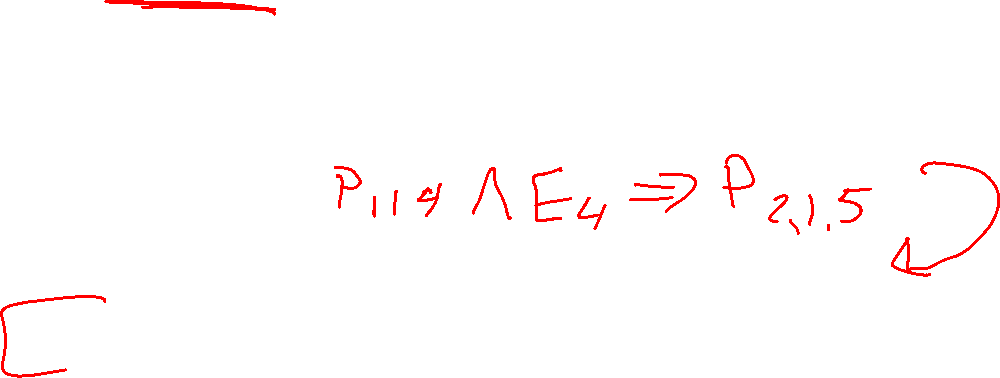 P₁₁₄ ∧ E₄ ⇒ P₂,₁.₅